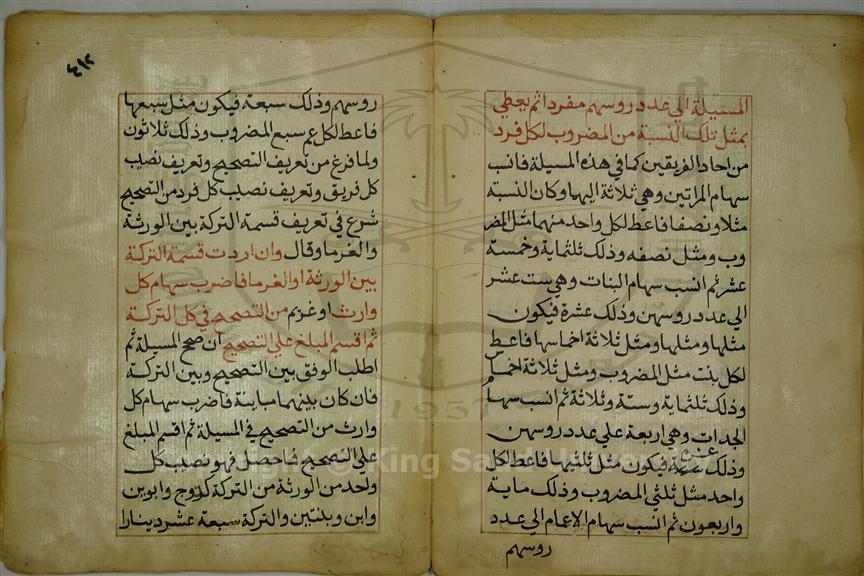 المسيلة الي عدد روسهم مفردا ثم يعطي
بمثل تلك النسبة من المضروب لكل فرد
من احاد الفريقين كما في هذه المسيلة فانسب
سهام المراتين وهي ثلاثة اليها وكان النسبة
مثلا ونصفا فاعط لكل واحد منهما مثل المضر
وب ومثل نصفه وذلك ثلثماية وخمسة
عشر ثم انسب سهام البنات وهي ست عشر
الي عدد روسهن وذلك عشرة فيكون
مثلها ومثلها ومثل ثلاثة اخماسها فاعط
لكل بنت مثل المضروب ومثل ثلاثة اخماس
وذلك ثلثماية وستة وثلاثة ثم انسب سهام
الجدات وهي اربعة علي عدد روسهن
وذلك ستة فيكون مثل ثلثيها فاعط لكل
واحد مثل ثلثي المضروب وذلك ماية
واربعون ثم انسب سهام الاعمام الي عدد
روسهم
٤١٢
روسهم وذلك سبعة فيكون مثل سبعها
فاعط لكل عم سبع المضروب وذلك ثلاثون
ولما فرغ من تعريف التصحيح وتعريف نصيب
كل فريق وتعريف نصيب كل فرد من التصحيح
شرع في تعريف قسمة التركة بين الورثة
والغرما وقال وان اردت قسمة التركة
بين الورثة او الغرما فاضرب سهام كل
وارث او غريم من التصحيح في كل التركة
ثم اقسم المبلغ علي التصحيح ان صح المسيلة ثم
اطلب الوفق بين التصحيح وبين التركة
فان كان بينهما مباينة فاضرب سهام كل
وارث من التصحيح في المسيلة ثم اقسم المبلغ
علي التصحيح فاحصل فهو نصيب كل
واحد من الورثة من التركة كزوج وابوين
وابن وبنتين والتركة سبعة عشر دينارا